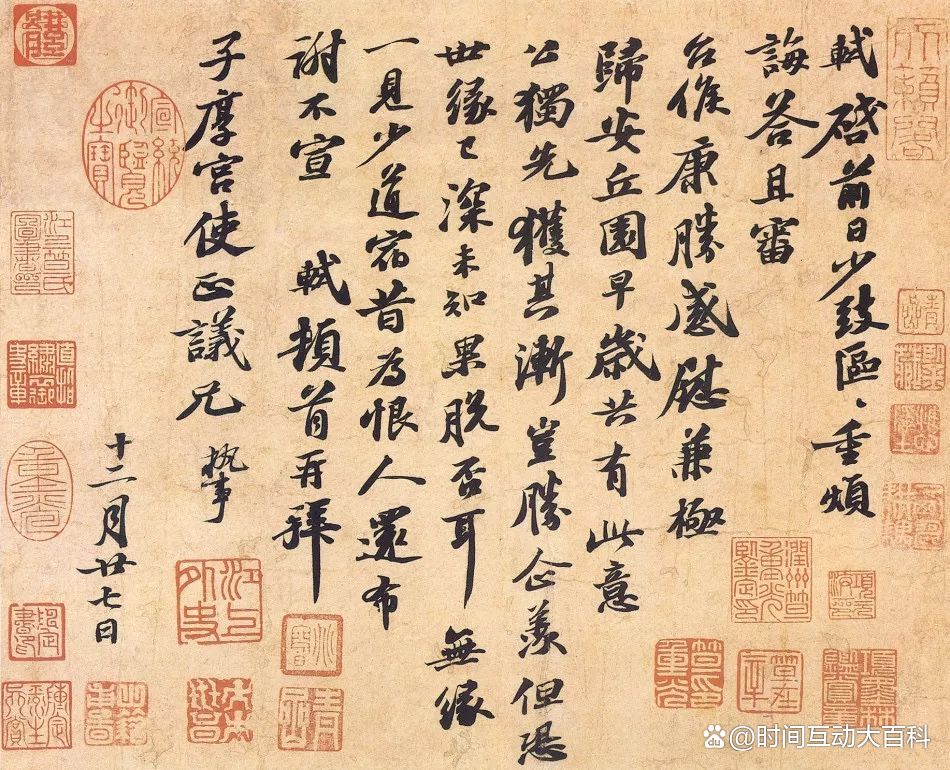 軾啓前日少致區〻重煩
誨答且審
台候康勝感慰兼極
歸安丘園早歲共有此意
公獨先獲其漸豈勝企羨但恐
世緣已深未知果脫否耳無緣
一見少道宿昔為恨人還布
謝不宣 軾頓首再拜
子厚宮使正議兄 執事
十二月廿七日
天籟閣
宣統御覽之寶
江上外史
@时间互动大百科